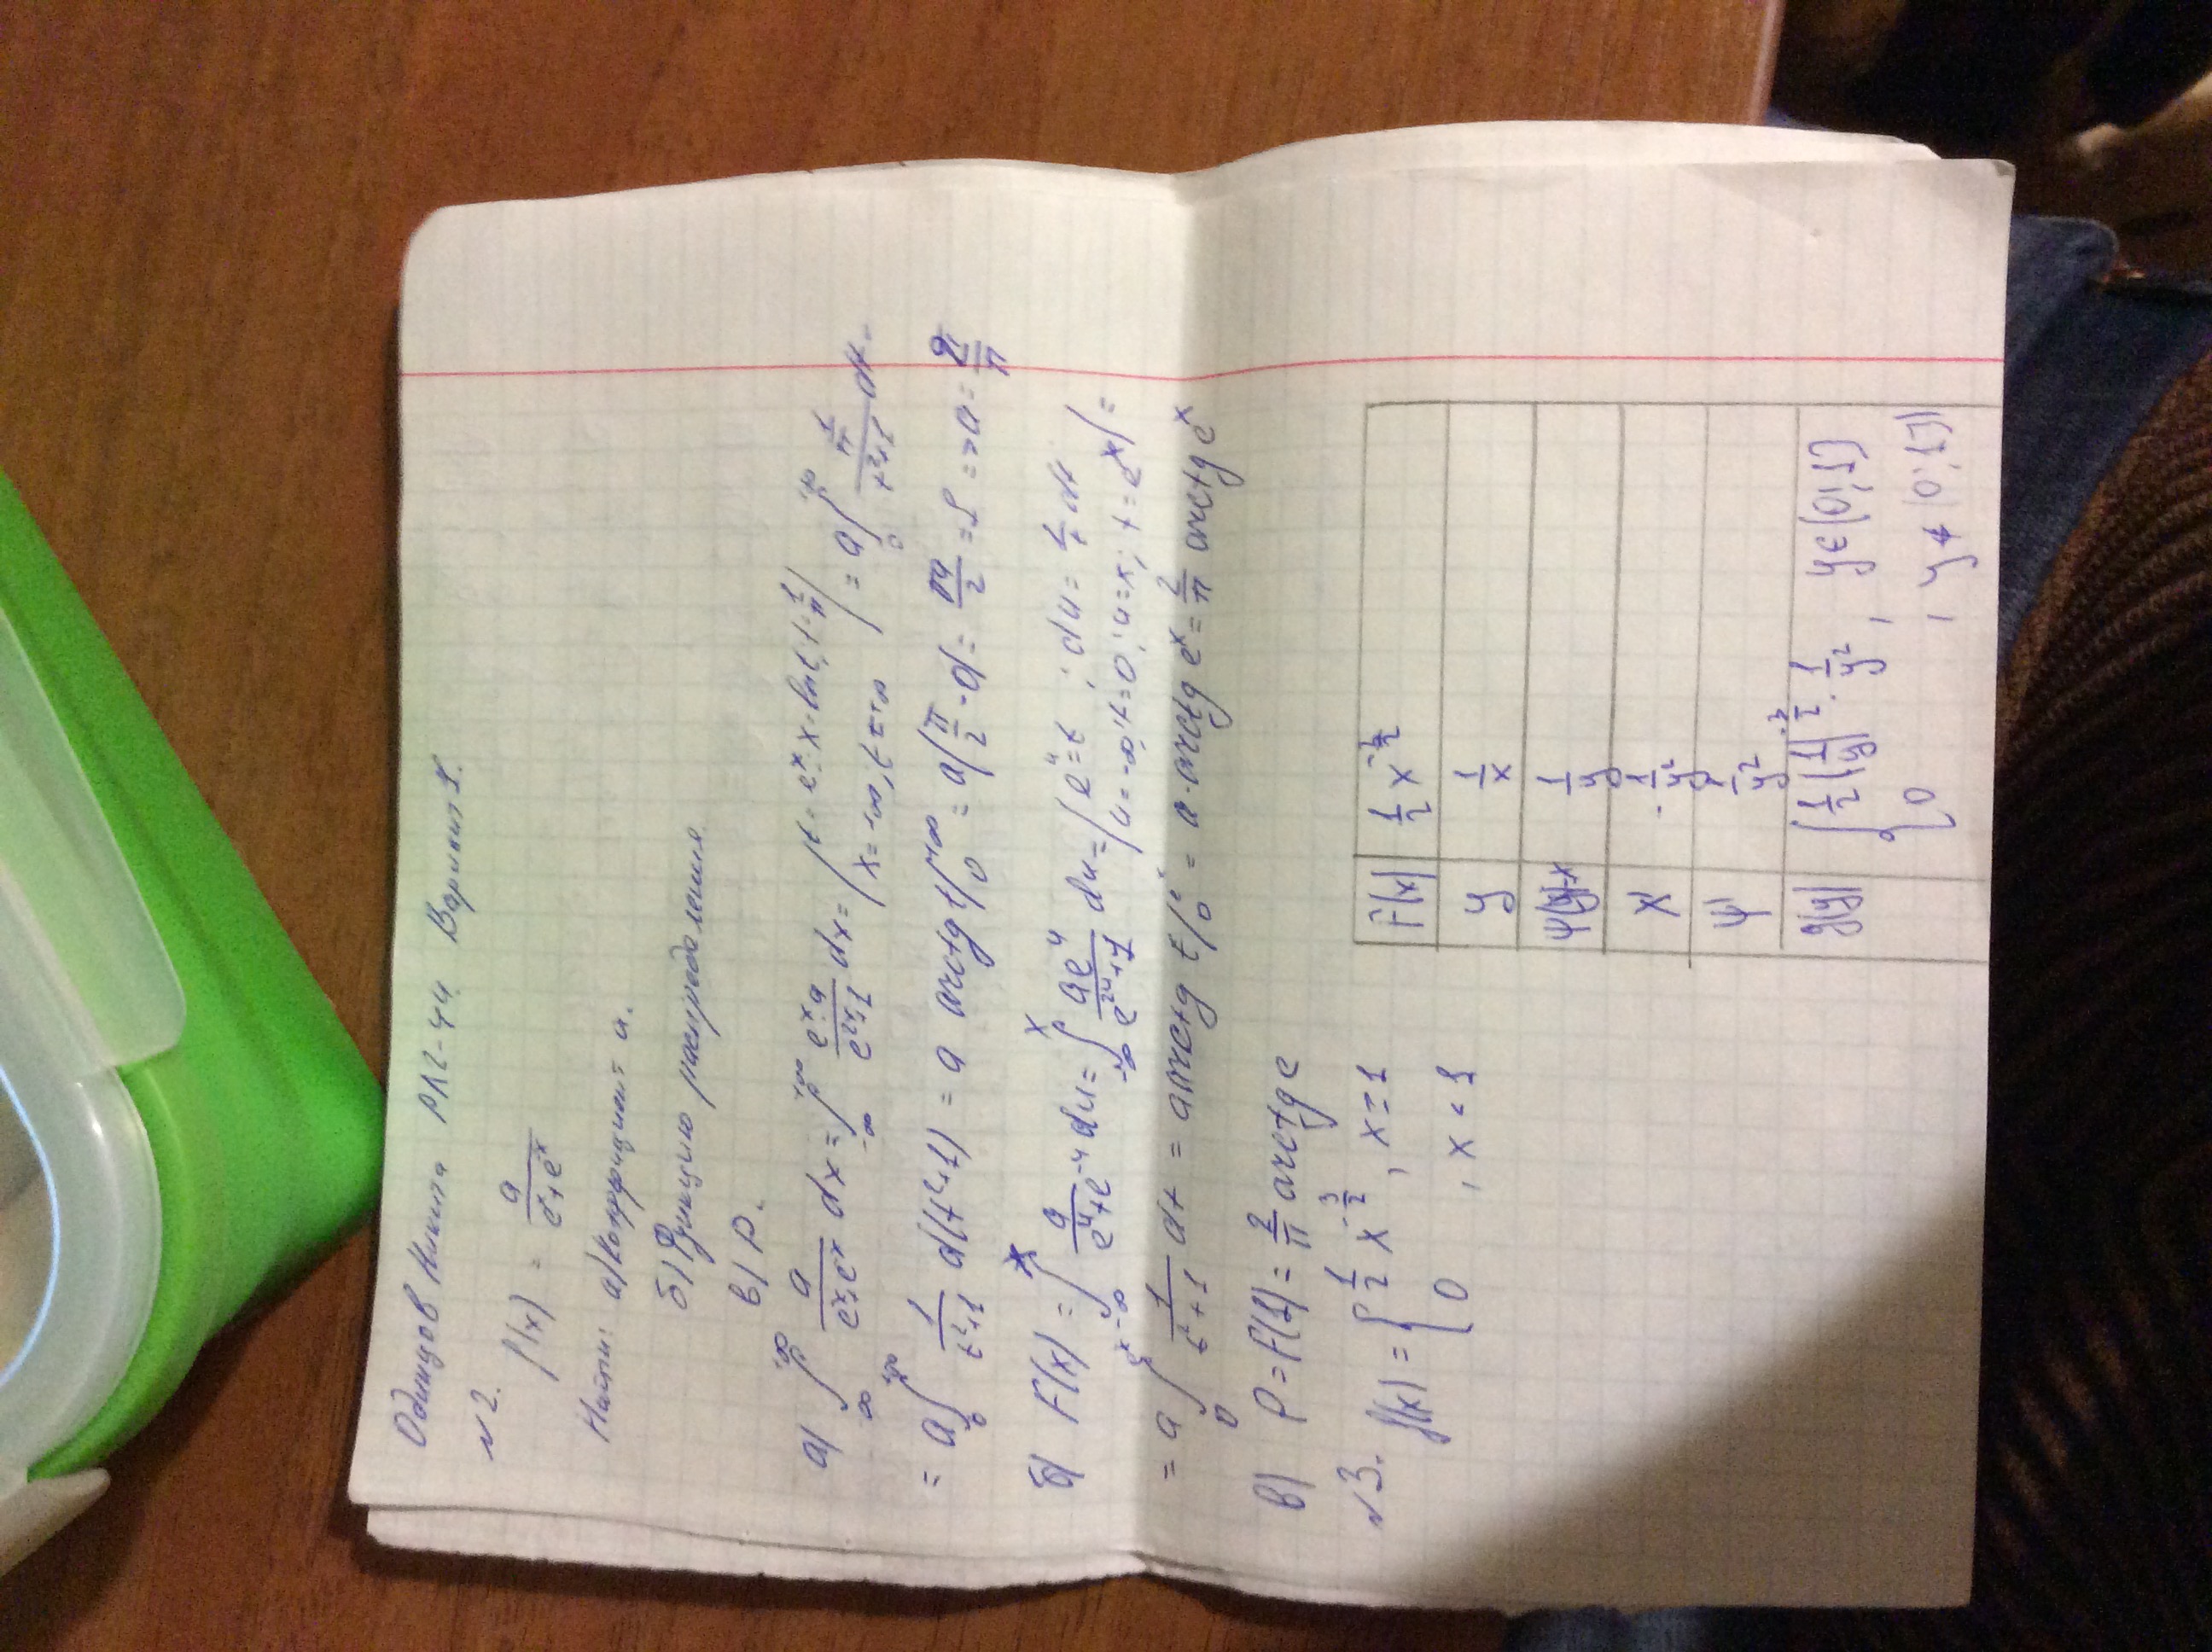 Одинцов Никита РЛ2-44 Вариант 1.
№2.
f(x) = a/(e^x+e^-x)
Найти: а) Коэффициент a.
б) Функцию распределения
в) P.
а) ∫_{-∞}^{+∞} a/(e^x+e^-x) dx = ∫_{-∞}^{+∞} e^x·a/(e^2x+1) dx =
x=+∞, t=+∞
= a∫_0^{+∞} 1/(t²+1) d(t²+1) = a arctg t|_0^{+∞} = a(π/2-0) = πa/2 = 1 => a = 2/π
б) F(x) = ∫_{-∞}^x a/(e^u+e^-u) du = ∫_{-∞}^x ae^u/(e^2u+1) du = (e^u=t; du = 1/t dt
u=-∞; t=0; u=x; t=e^x) =
= a∫_0^{e^x} 1/(t²+1) dt = a arctg t|_0 = a·arctg e^x = 2/π arctg e^x
в) P = F(1) = 2/π arctg e
№3. f(x) = { 1/2 x^{-3/2}, x=1
0 , x<1
F(x) 1/2 x^{-3/2}
y 1/x
ψ(y)=x 1/y
x' -1/y²
ψ' 1/y²
g(y) { 1/2 (1/y)^{-3/2} · 1/y², y∈(0;1)
0 , y∉(0;1)